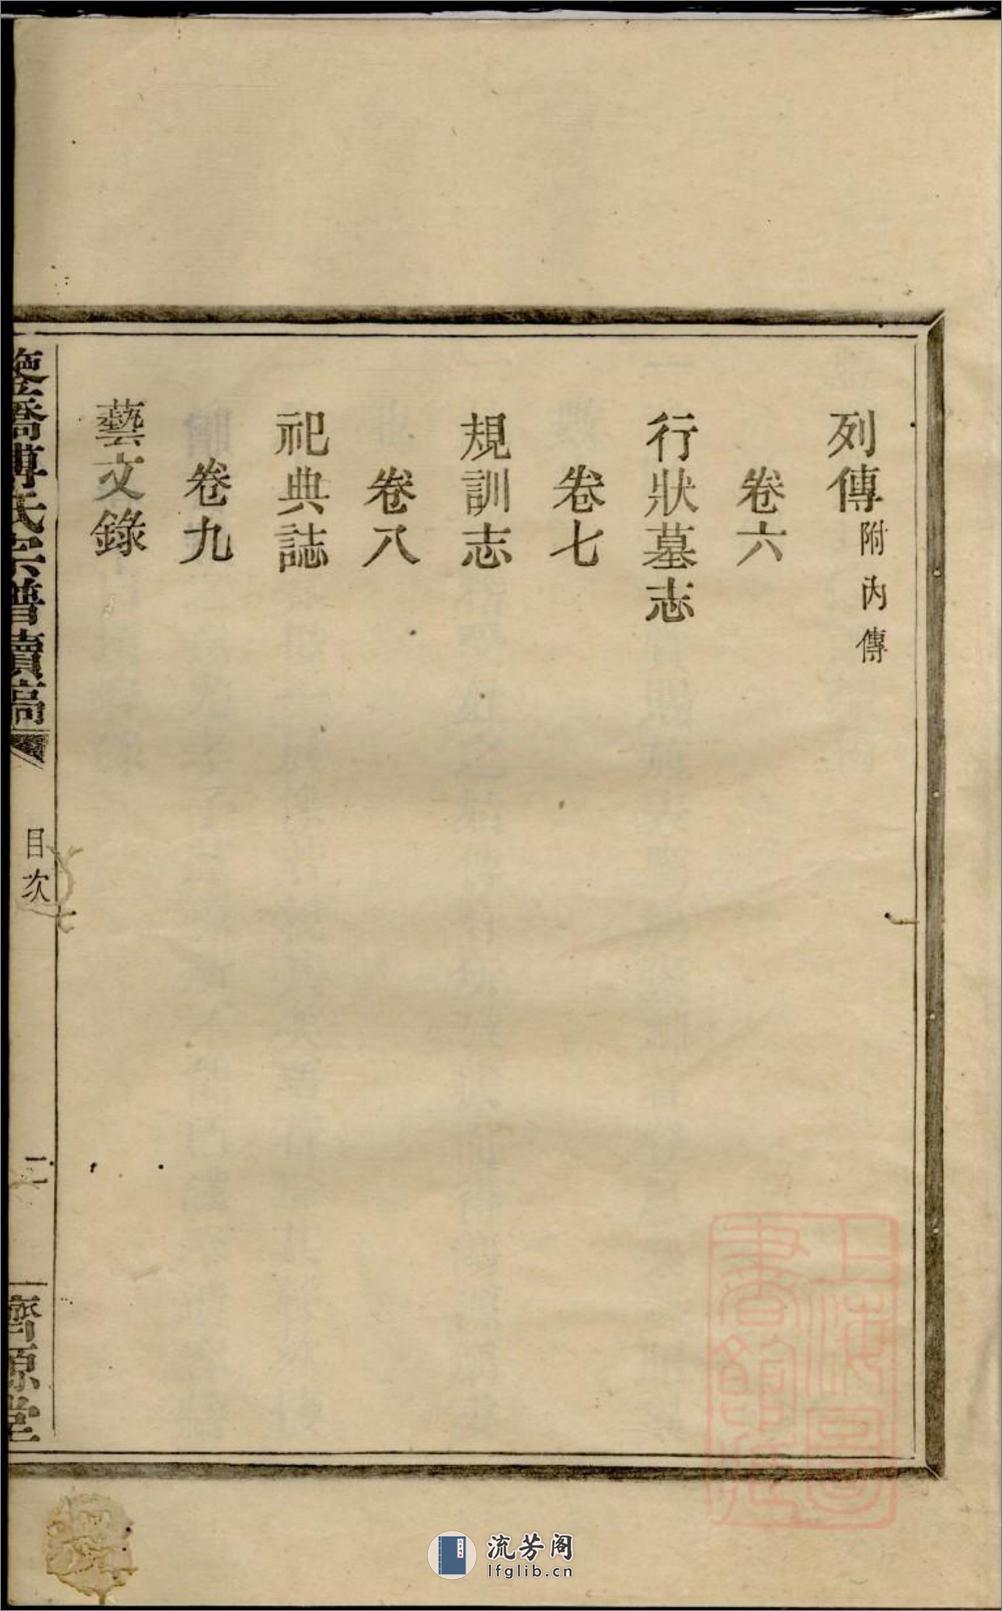 列傳附內傳
卷六
行狀墓志
卷七
規訓志
卷八
祀典誌
卷九
藝文錄
橋傅氏宗譜續稿
目次
二
濟源堂
上海圖書館藏
流芳阁
lfglib.cn